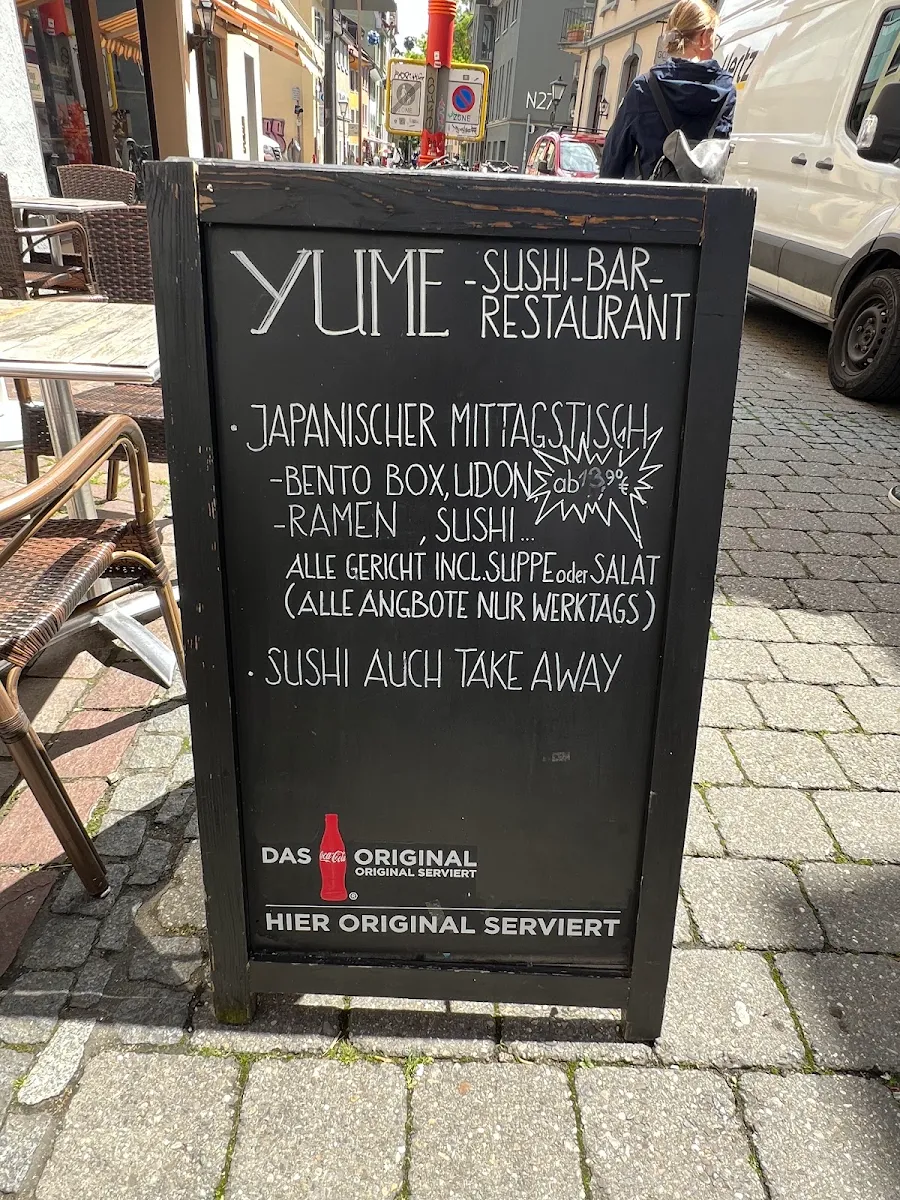 N27
ZONE
YUME -SUSHI-BAR-
RESTAURANT
· JAPANISCHER MITTAGSTISCH
-BENTO BOX, UDON
ab 13,90€
-RAMEN , SUSHI...
ALLE GERICHT INCL. SUPPE oder SALAT
(ALLE ANGBOTE NUR WERKTAGS)
· SUSHI AUCH TAKE AWAY
DAS Coca-Cola ® ORIGINAL
ORIGINAL SERVIERT
HIER ORIGINAL SERVIERT